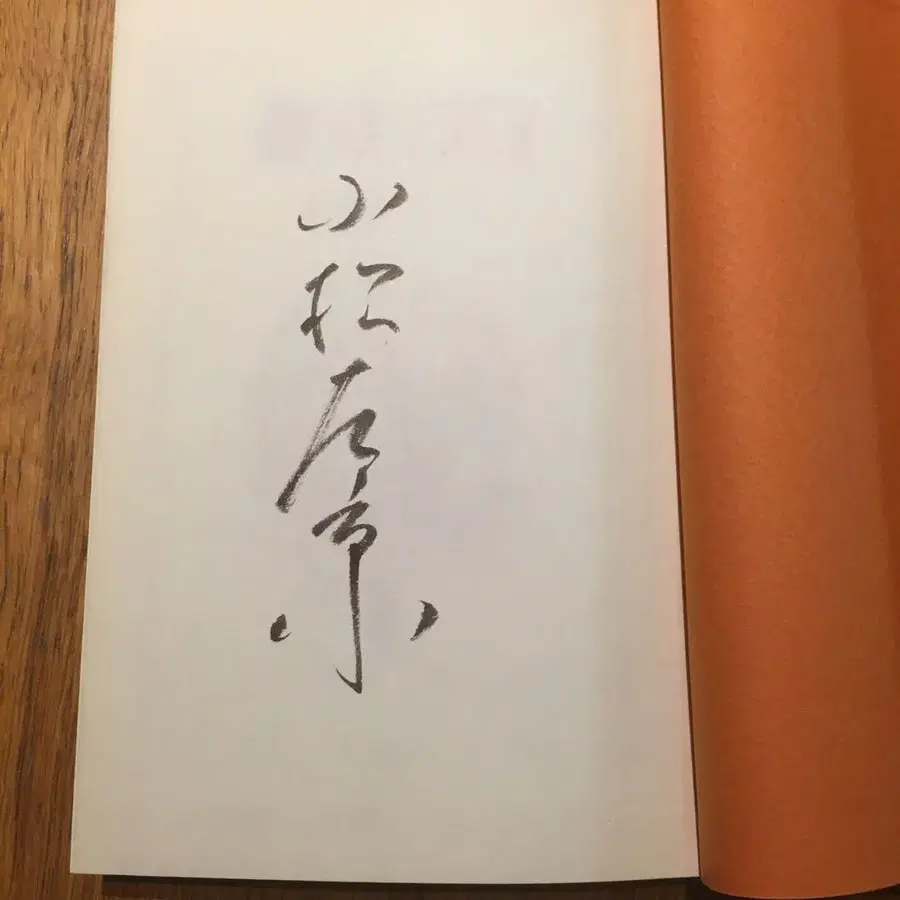 小松左京